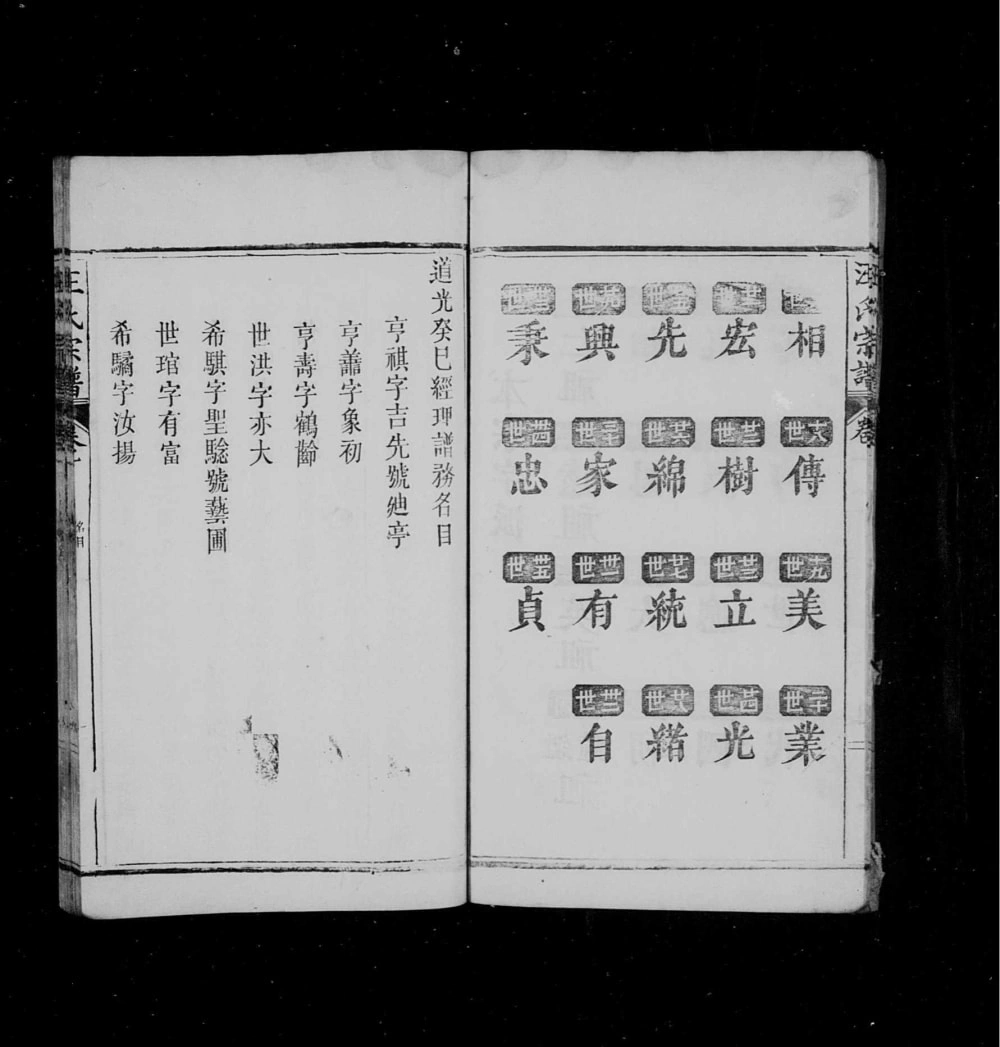 汪氏宗譜 卷
世 相 十八世 傳 十九世 美 二十世 業
廿一世 宏 廿二世 樹 廿三世 立 廿四世 光
廿五世 先 廿六世 綿 廿七世 統 廿八世 緒
廿九世 興 三十世 家 卅一世 有 卅二世 自
卅三世 秉 卅四世 忠 卅五世 貞
道光癸巳經理譜務名目
亨祺字吉先號廸亭
亨譱字象初
亨壽字鶴齡
世洪字亦大
希騏字聖騐號藝圃
世琯字有富
希驈字汝揚
汪氏宗譜 卷 名目